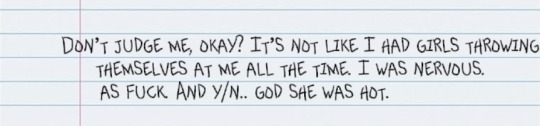 DON'T JUDGE ME, OKAY? IT'S NOT LIKE I HAD GIRLS THROWING
THEMSELVES AT ME ALL THE TIME. I WAS NERVOUS.
AS FUCK. AND Y/N.. GOD SHE WAS HOT.